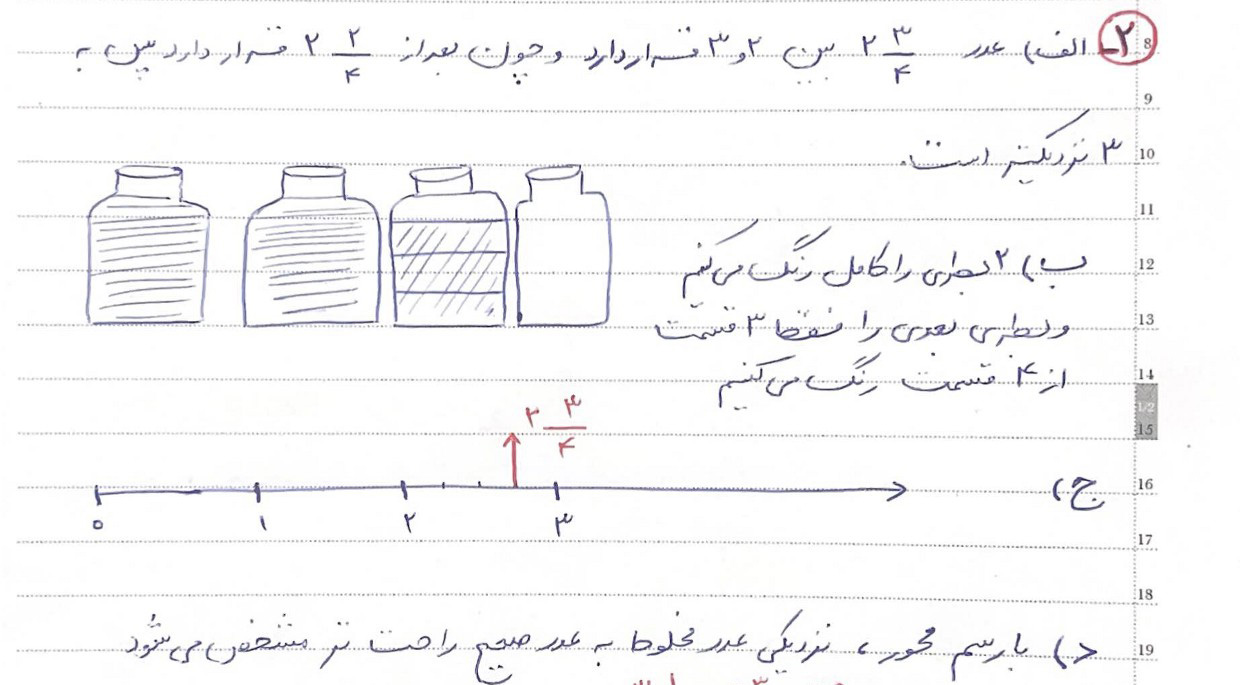 ۲- الف) عدد ۲ ۳/۴ بین ۲ و ۳ قرار دارد و چون بعد از ۲ ۲/۴ قرار دارد پس به
۳ نزدیکتر است.
ب) ۲ بطری را کامل رنگ می‌کنیم
و بطری بعدی را فقط ۳ قسمت
از ۴ قسمت رنگ می‌کنیم
۲ ۳/۴
ج)
۰ ۱ ۲ ۳
د) با رسم محور، نزدیکی عدد مخلوط به عدد صحیح راحت تر مشخص می‌شود
8
9
10
11
12
13
14
1/2
15
16
17
18
19